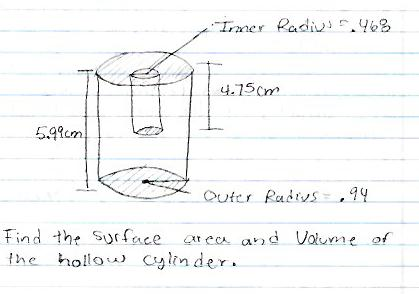 Inner Radius = .468
4.75cm
5.99cm
Outer Radius = .94
Find the surface area and Volume of
the hollow cylinder.